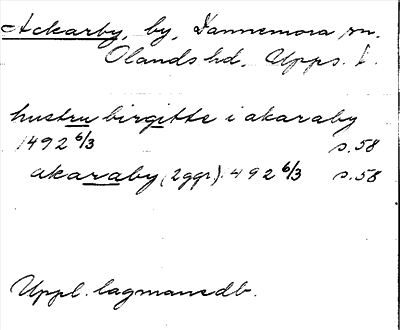 Ackarby, by, Dannemora sn.
Olands hd, Upps. l.
hustru birgitte i akaraby
1492 6/3 s. 58
akaraby (2 ggr). 492 6/3 s. 58
Uppl. lagmansdb.